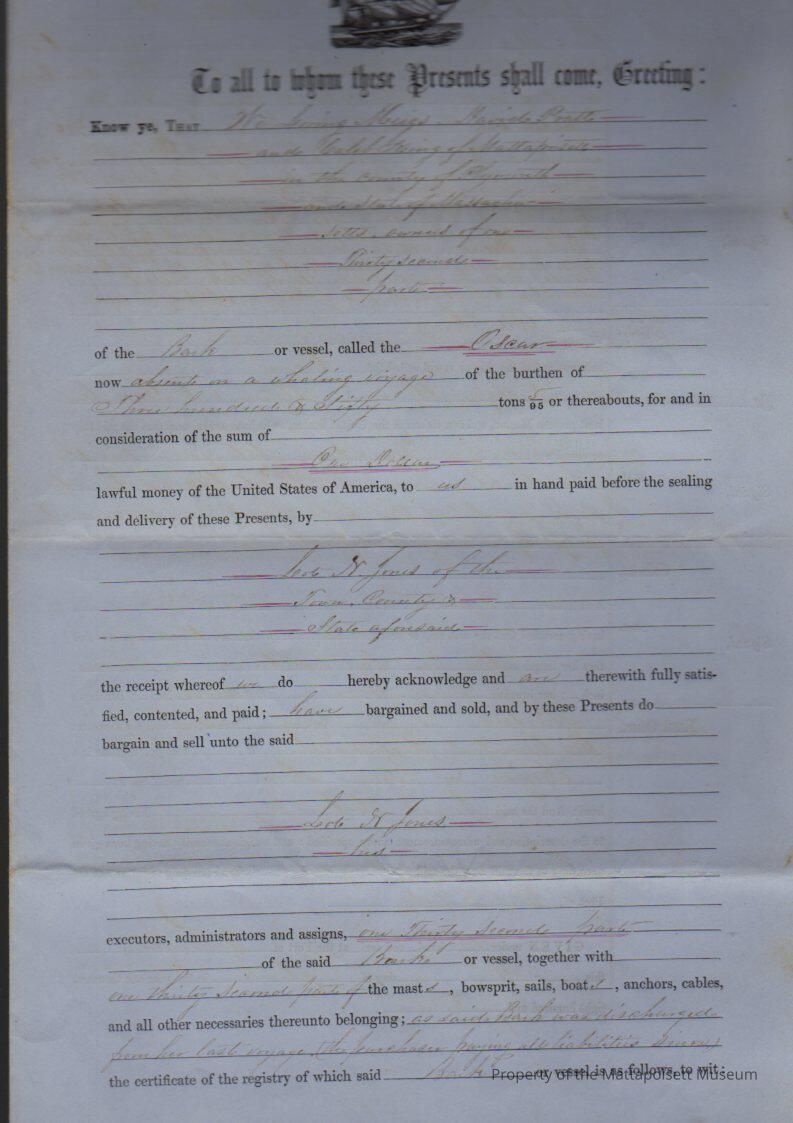 To all to whom these Presents shall come, Greeting:
Know ye, THAT We Loring Meigs, David Pratt
and Caleb King of Mattapoisett
in the county of Plymouth
and State of Massachu-
setts, owners of one
Thirty second
part
of the Bark or vessel, called the Oscar
now absent on a whaling voyage of the burthen of
Three hundred & sixty tons /95 or thereabouts, for and in
consideration of the sum of
One Dollar
lawful money of the United States of America, to us in hand paid before the sealing
and delivery of these Presents, by
N Jones of the
Town, County &
State aforesaid
the receipt whereof we do hereby acknowledge and are therewith fully satis-
fied, contented, and paid; have bargained and sold, and by these Presents do
bargain and sell unto the said
N Jones
his
executors, administrators and assigns, one Thirty Second part
of the said Bark or vessel, together with
one thirty second part of the masts, bowsprit, sails, boats, anchors, cables,
and all other necessaries thereunto belonging; as said Bark was discharged
from her last voyage, the purchaser paying all liabilities since
the certificate of the registry of which said Bark or vessel is as follows, to wit:
Property of the Mattapoisett Museum